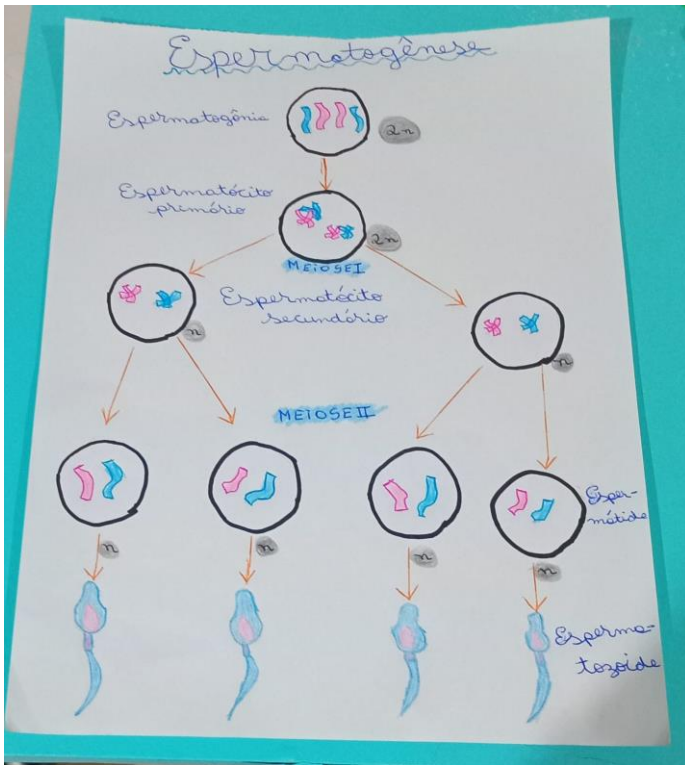 Espermatogênese
Espermatogônia
2n
Espermatócito
primário
2n
MEIOSE I
Espermatócito
secundário
n
n
MEIOSE II
Esper-
mátide
n
n
n
n
Esperma-
tozoide